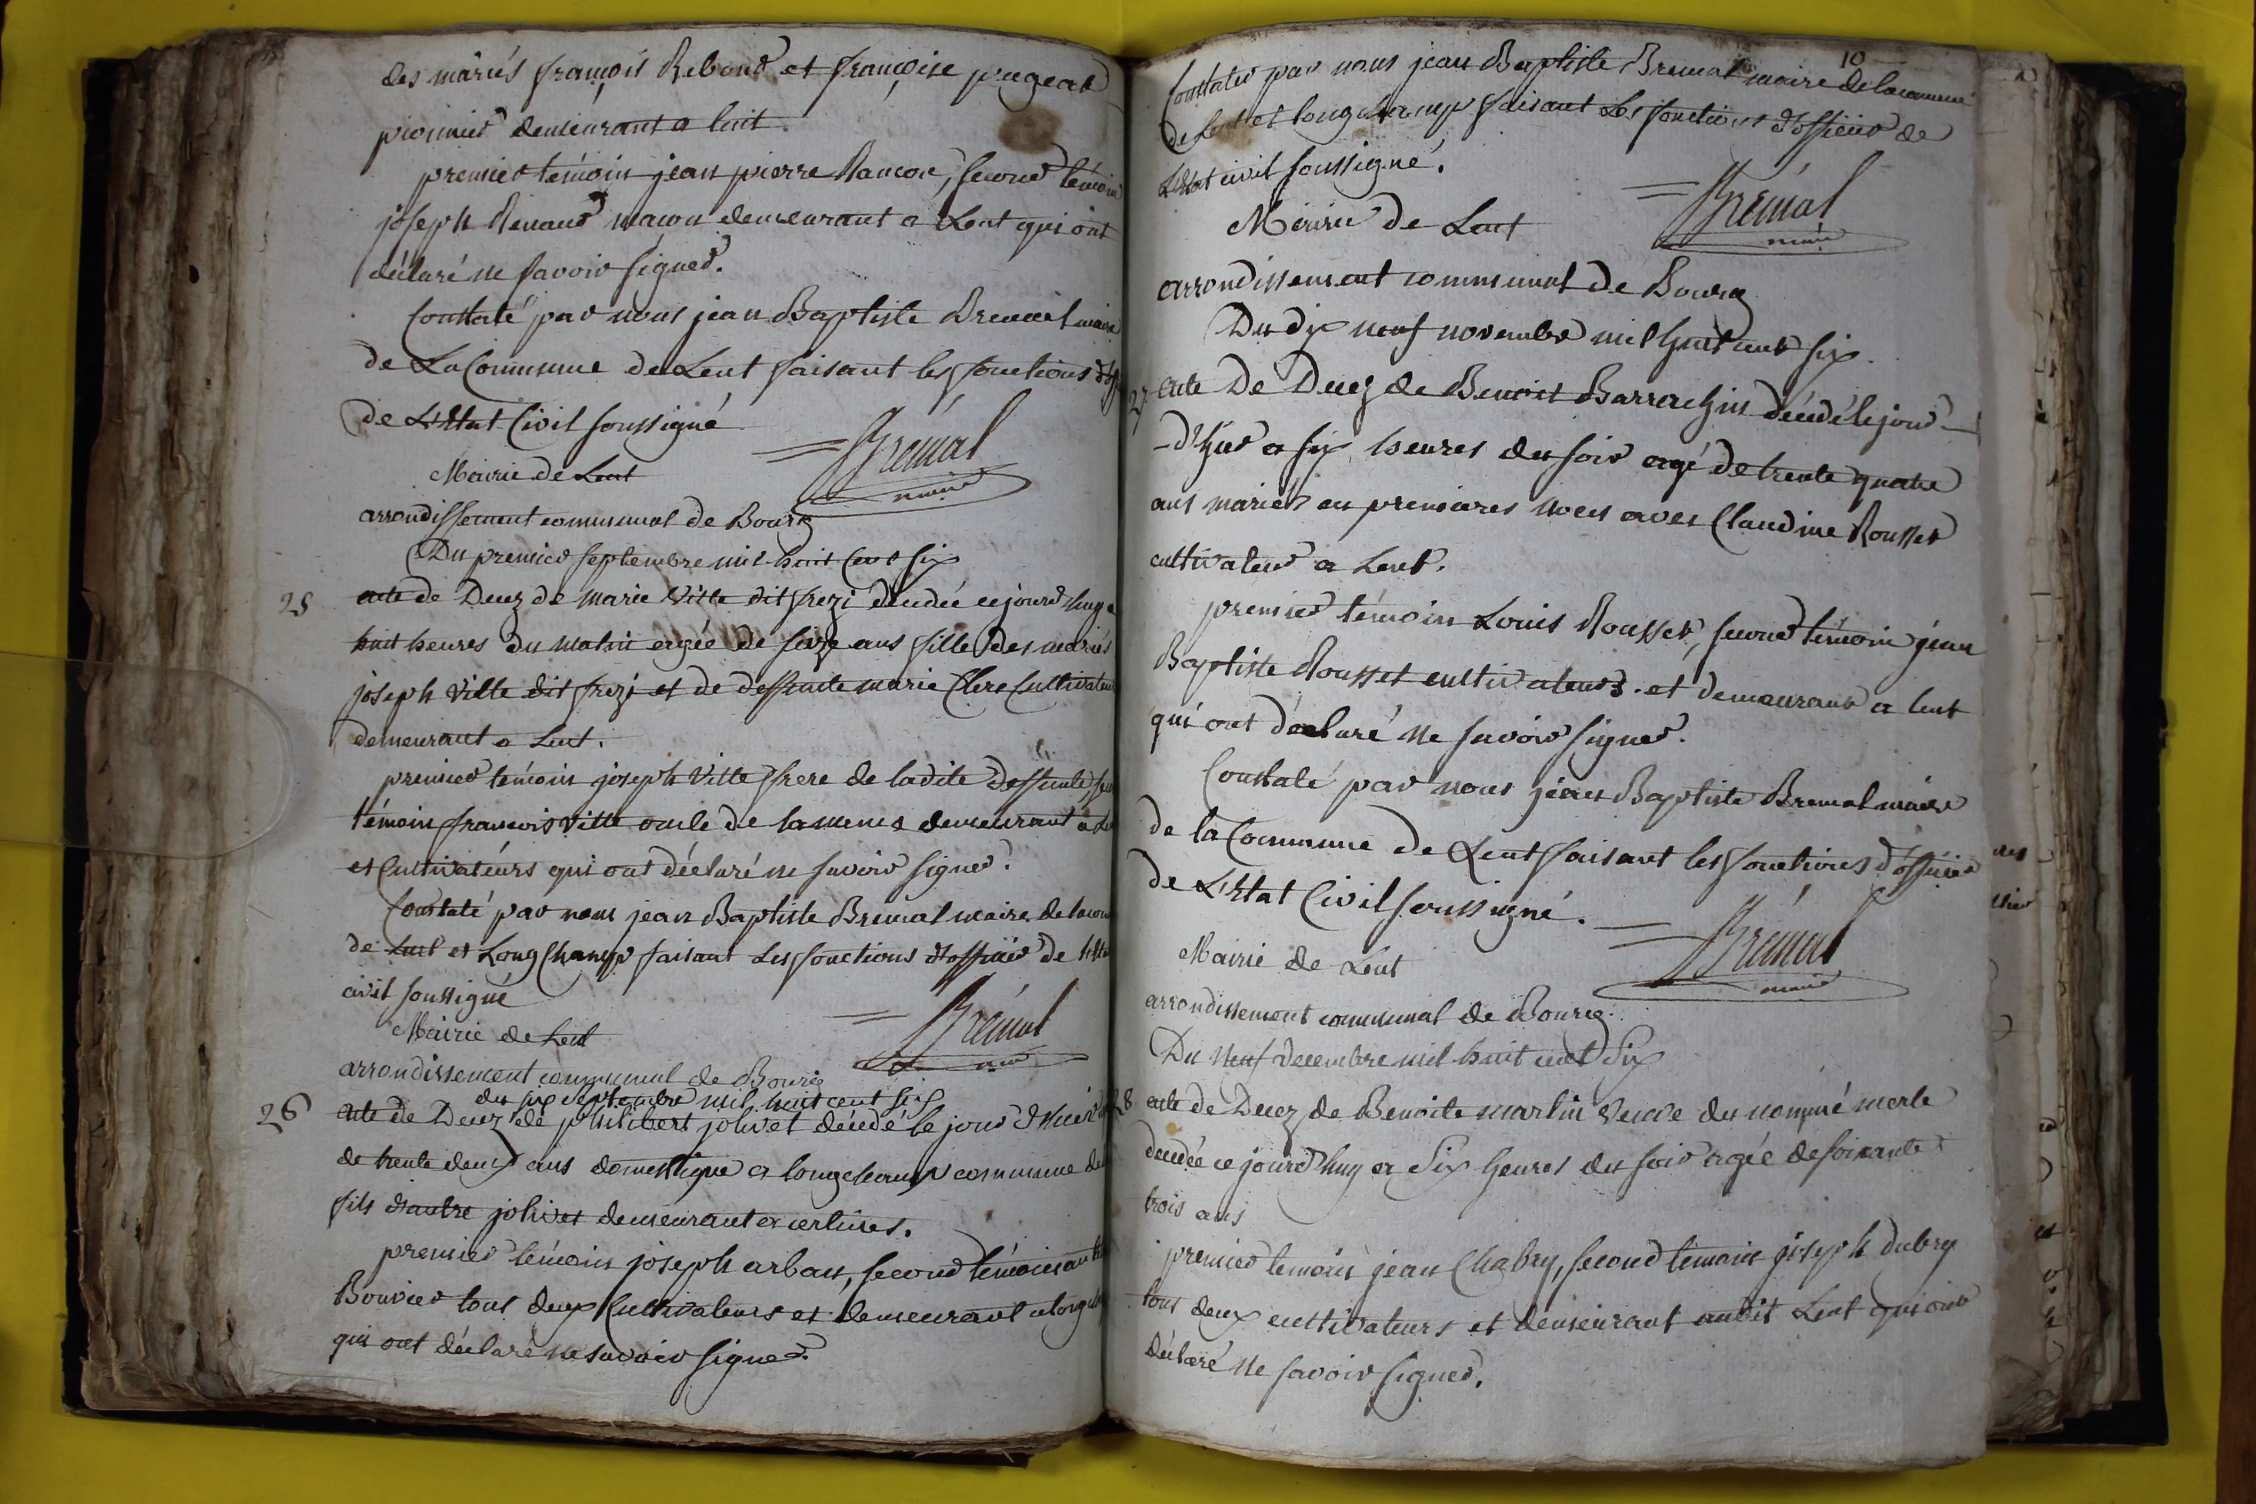 des mariés françois Rebond et françoise pugeat
pionnier demeurant a lent.
premier témoin jean pierre Rancon, second témoin
joseph Renaud maçon demeurant a Lent qui ont
déclaré ne savoir signer.
Constaté par nous jean Baptiste Bremal maire
de La Commune de Lent faisant les fonctions
de L'Etat Civil soussigné
Brémal
maire
Mairie de Lent
arrondissement communal de Bourg
Du premier septembre mil huit cent six
25 acte de Decez de marie Ville dit frezi décédée ce jourd'huy a
huit heures du matin agée de seize ans fille des mariés
joseph Ville dit frezi et de deffunte marie Clere Cultivateur
demeurant a Lent.
premier temoin joseph Ville frere de ladite deffunte,
témoin francois Ville oncle de la meme demeurant a
et Cultivatéurs qui ont déclaré ne savoir signer.
Constaté par nous jean Baptiste Bremal maire de la
de Lent et Longchamp faisant Les fonctions d'officier de
civil soussigné
Brémal
Mairie de Lent
arrondissement communal de Bourg
du six septembre mil huit cent six
26 acte de Decez de philibert jolivet décédé le jour d'hier
de trente deux ans domestique a longchamp commune de
fils d'autre jolivet demeurant a certines.
premier témoin joseph arban, second témoin
Bouvier tous deux Cultivateurs et demeurant a
qui ont déclaré ne savoir signer.
10
Constaté par nous jean Baptiste Bremal maire de la commune
de Lent et longchamp faisant Les fonctions d'officier de
L'Etat civil soussigné.
Brémal
maire
Mairie de Lent
arrondissement communal de Bourg
Du dix neuf novembre mil huit cent six.
27 acte De Decez de Benoit Barrachin décédé le jour
d'hier a six heures du soir agé de trente quatre
ans marié en premieres noces avec Claudine Rousset
cultivateur a Lent.
premier témoin Louis Rousset, second témoin jean
Baptiste Rousset cultivateurs et demeurant a lent
qui ont déclaré ne savoir signer.
Constaté par nous jean Baptiste Bremal maire
de la Commune de Lent faisant les fonctions d'officier
de L'Etat Civil soussigné.
Brémal
maire
Mairie de Lent
arrondissement communal de Bourg.
Du Neuf decembre mil huit cent Six
28 acte de Decez de Benoite martin veuve du nommé merle
decedée ce jourd'huy a Six heures du soir agée de soixante
trois ans
premier temoin jean Chabry, second temoin joseph dubry
tous deux cultivateurs et demeurant audit Lent qui ont
déclaré ne savoir signer.